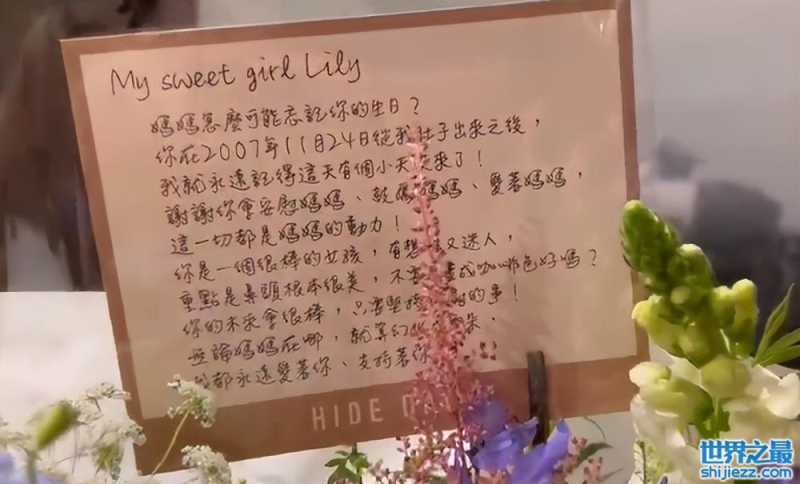 My sweet girl Lily
媽媽怎麼可能忘記你的生日?
你在2007年11月24日從我肚子出來之後,
我就永遠記得這天有個小天使來了!
謝謝你會安慰媽媽、鼓媽媽、愛著媽媽,
這一切都是媽媽的動力!
你是一個很棒的女孩,有想又迷人,
重點是鼻頭根本很美,不成咖啡色好嗎?
你的未來會很棒,只要堅的事!
無論媽媽在哪,就算幻
都永遠愛著你、支持著你
HIDE
世界之最
shijiezz.com